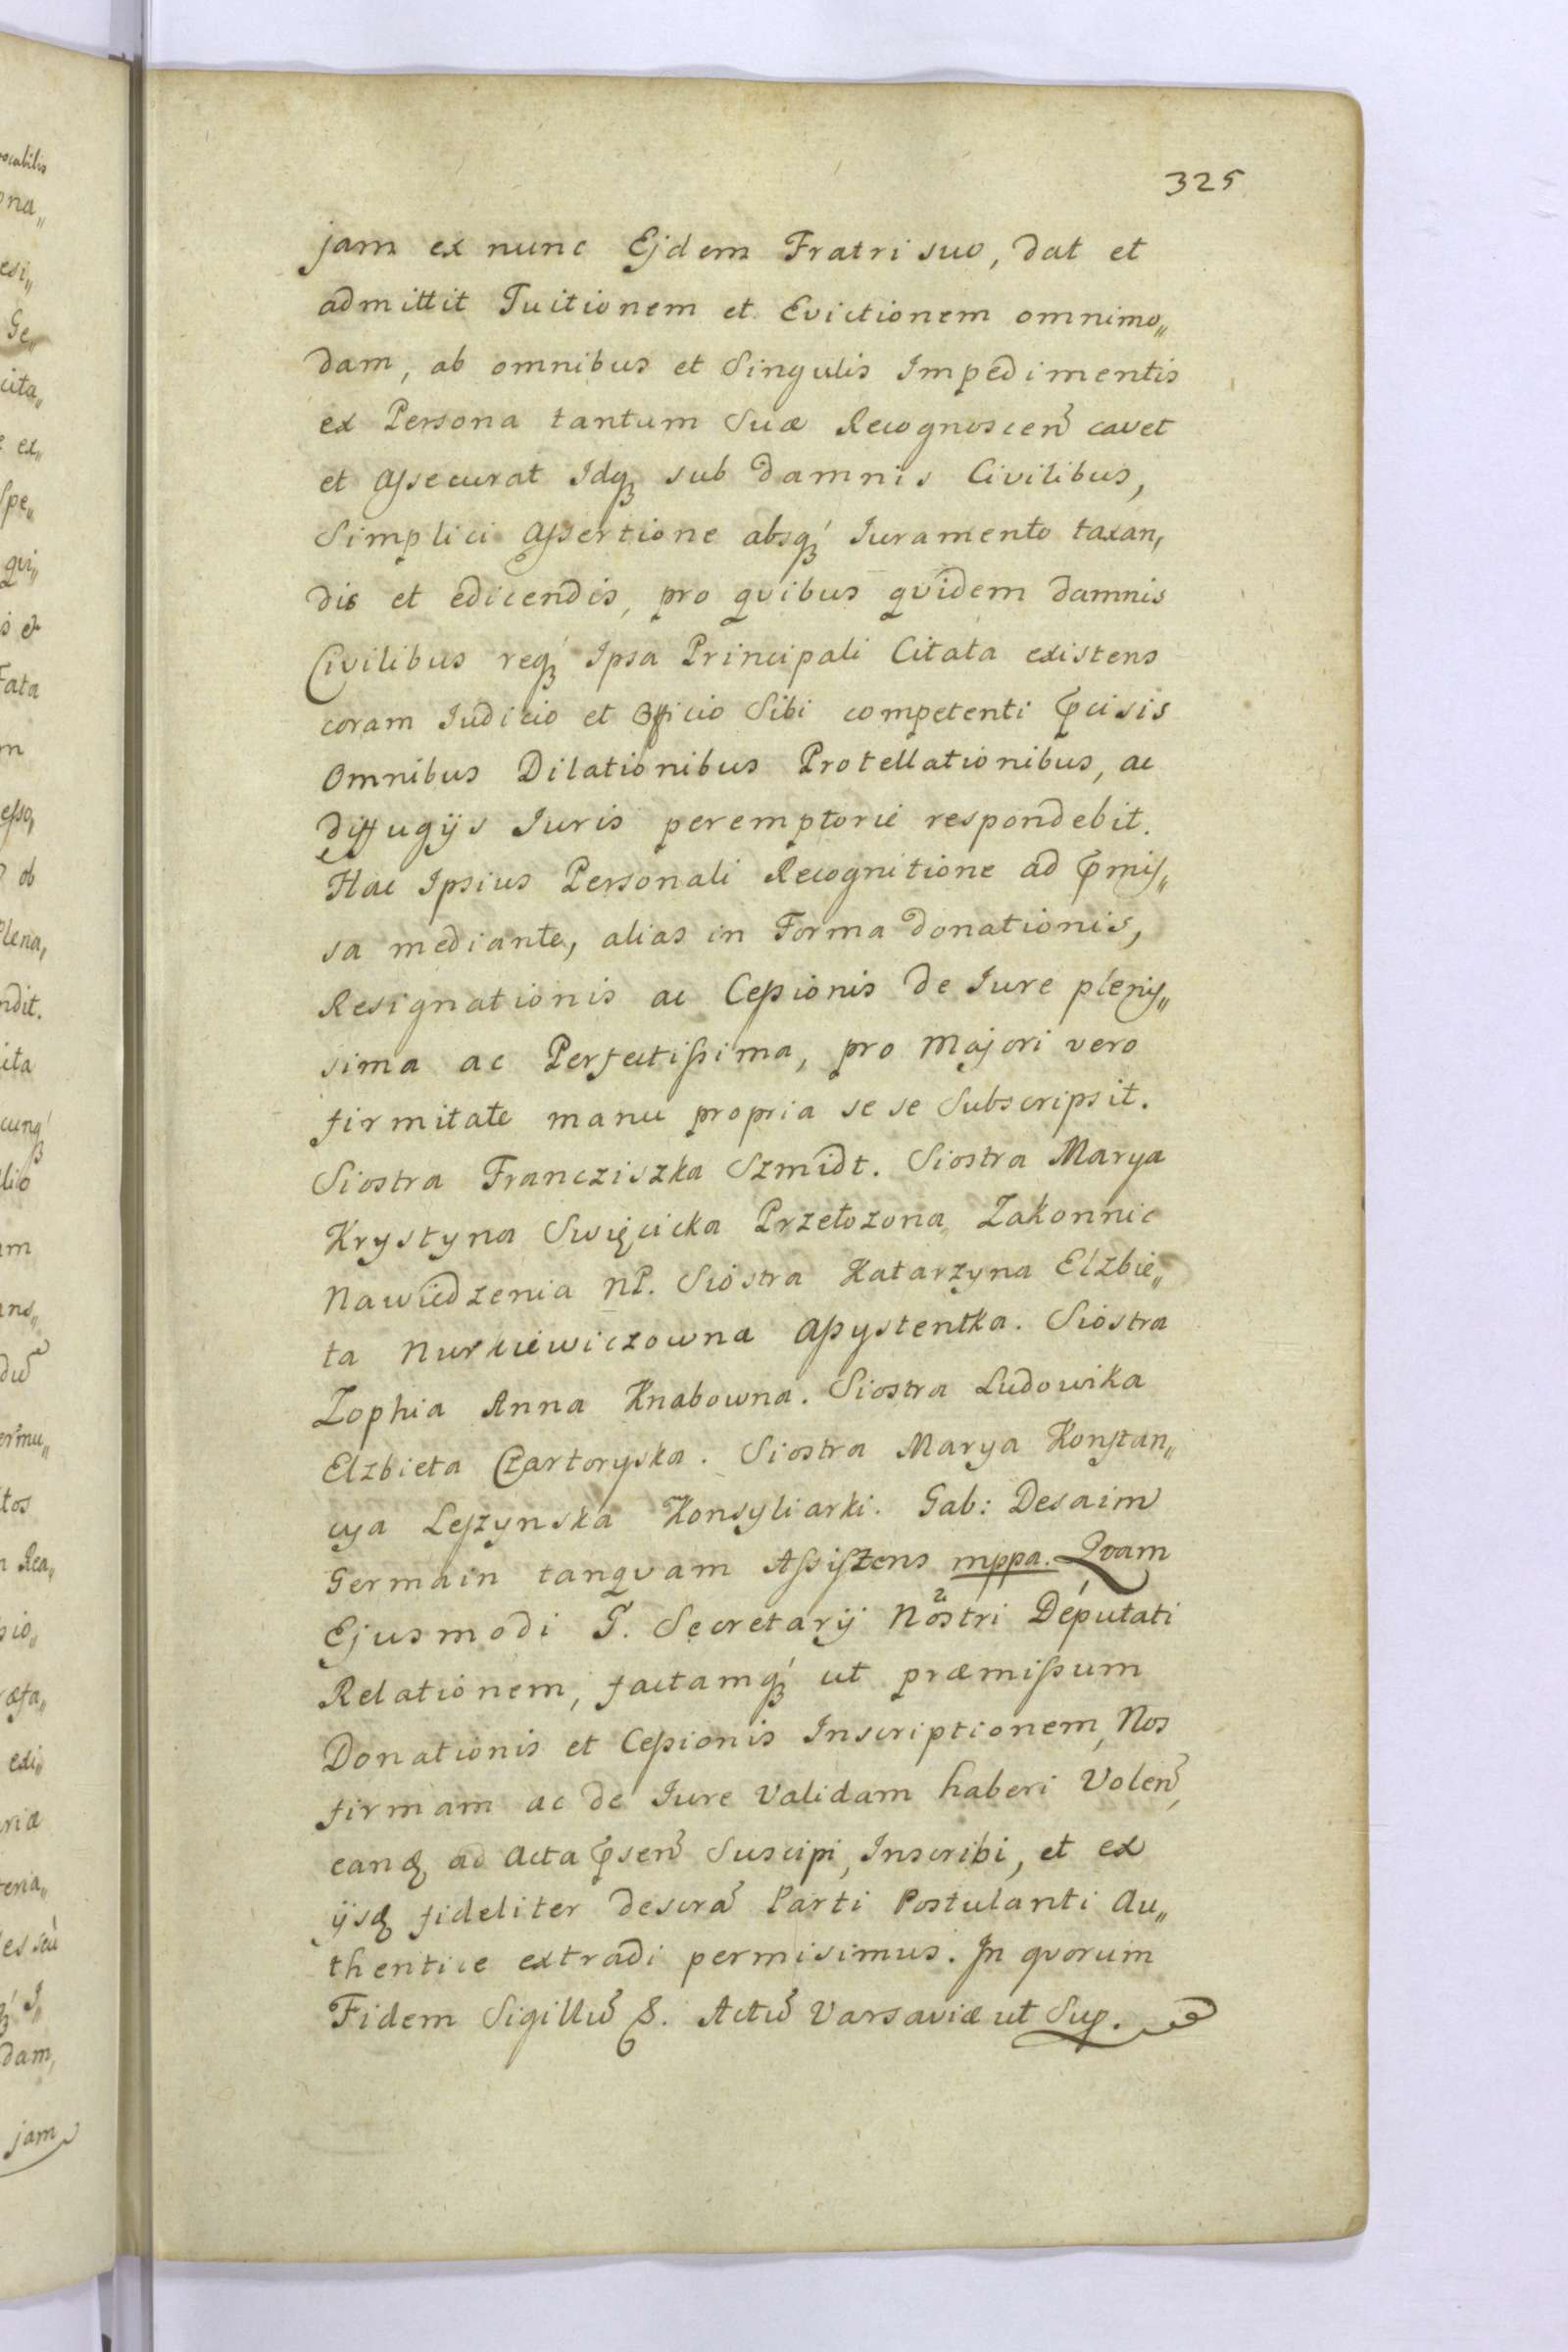 325
jam ex nunc Ejdem Fratri suo, dat et
admittit Tuitionem et Evictionem omnimo„
dam, ab omnibus et Singulis Impedimentis
ex Persona tantum Suæ Recognoscen̄ cavet
et assecurat Idq̨ sub damnis Civilibus,
Simplici assertione absq́ Iuramento taxan,
dis et edicendis, pro qvibus qvidem damnis
Civilibus req́ Ipsa Principali Citata existens
coram Iudicio et Officio Sibi competenti p̄cisis
Omnibus Dilationibus Protellationibus, ac
diffugijs Iuris peremptorie respondebit.
Hac Ipsius Personali Recognitione ad p̄mis„
sa mediante, alias in Forma donationis,
Resignationis ac Cessionis de Iure plenis„
sima ac Perfectissima, pro Majori vero
firmitate manu propria se se Subscripsit.
Siostra Francziszka Szmidt. Siostra Marya
Krystyna Swięcicka Przełozona Zakonnic
Nawiedzenia NP. Siostra Katarzyna Elzbie„
ta Nurkiewiczowna Assystentka. Siostra
Zophia Anna Knabowna. Siostra Ludowika
Elzbieta Czartoryska. Siostra Marya Konstan„
cya Leszynska Konsyliarki. Gab: Desaim
Germain tanqvam Assistens mppa. Qvam
Ejusmodi G. Secretarij Nostri Deputati
Relationem, factamq́ ut præmissum
Donationis et Cessionis Inscriptionem, Nos
firmam ac de Iure Validam haberi Volen̄,
eanq̨ ad Acta p̄sen̄ Suscipi, Inscribi, et ex
ijsq̨ fideliter descrā Parti Postulanti Au„
thentice extradi permisimus. In qvorum
Fidem Sigillū &. Actū Varsaviæ ut Sup.